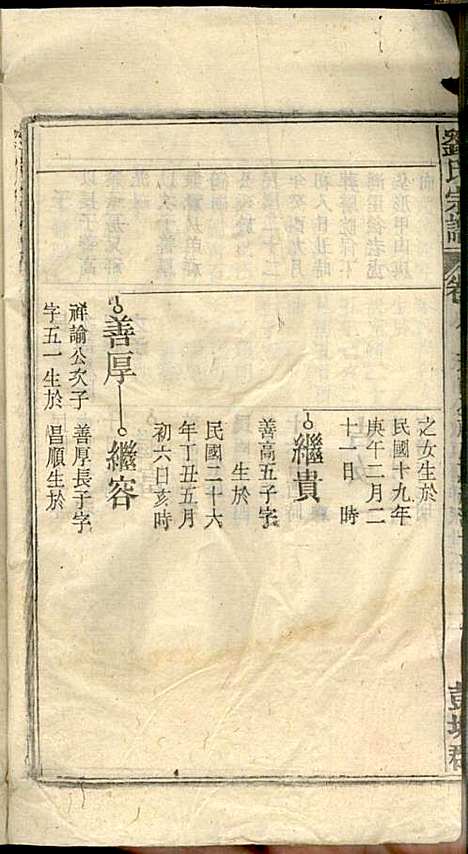 劉氏宗譜
卷
彭城郡
之女生於
民國十九年
庚午二月二
十一日　時
繼貴
善高五子字
　　生於
民國二十六
年丁丑五月
初六日亥時
善厚　繼容
祥諭公次子　善厚長子字
字五一生於　昌順生於